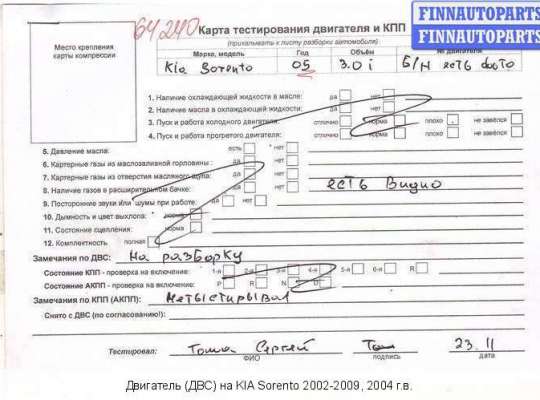 FINNAUTOPARTS
FINNAUTOPARTS
64240 Карта тестирования двигателя и КПП
(прикалывать к листу разборки автомобиля)
Место крепления карты компрессии
Марка, модель Год Объём № двигателя
Kia Sorento 05 3.0i Б/Н есть фото
1. Наличие охлаждающей жидкости в масле: да нет
2. Наличие масла в охлаждающей жидкости: да нет
3. Пуск и работа холодного двигателя: отлично норма плохо не завёлся
4. Пуск и работа прогретого двигателя: отлично норма плохо не завёлся
5. Давление масла: есть нет
6. Картерные газы из маслозаливной горловины: да нет
7. Картерные газы из отверстия масляного щупа: да нет
8. Наличие газов в расширительном бачке: да нет
есть видио
9. Посторонние звуки или шумы при работе: да нет
10. Дымность и цвет выхлопа: норма
11. Состояние сцепления: норма
12. Комплектность полная
Замечания по ДВС: На разборку
Состояние КПП - проверка на включение: 1-я 2-я 3-я 4-я 5-я R
Состояние АКПП - проверка на включение: P R N D
Замечания по КПП (АКПП):
Снято с ДВС (по согласованию!):
Тестировал: Сергей 23.11
ФИО подпись дата
Двигатель (ДВС) на KIA Sorento 2002-2009, 2004 г.в.